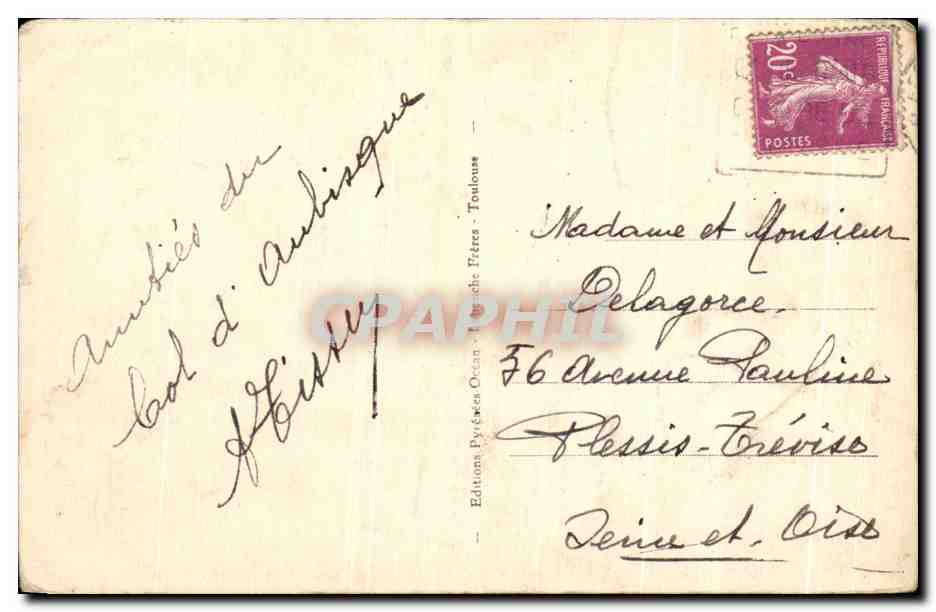 Amitiés du
Col d'Aubisque
Editions Pyrénées-Océan - Frères - Toulouse
CPAPHIL
20c
REPUBLIQUE FRANÇAISE
POSTES
Madame et Monsieur
Delagorce.
56 Avenue Pauline
Plessis-Trévise
Seine et Oise